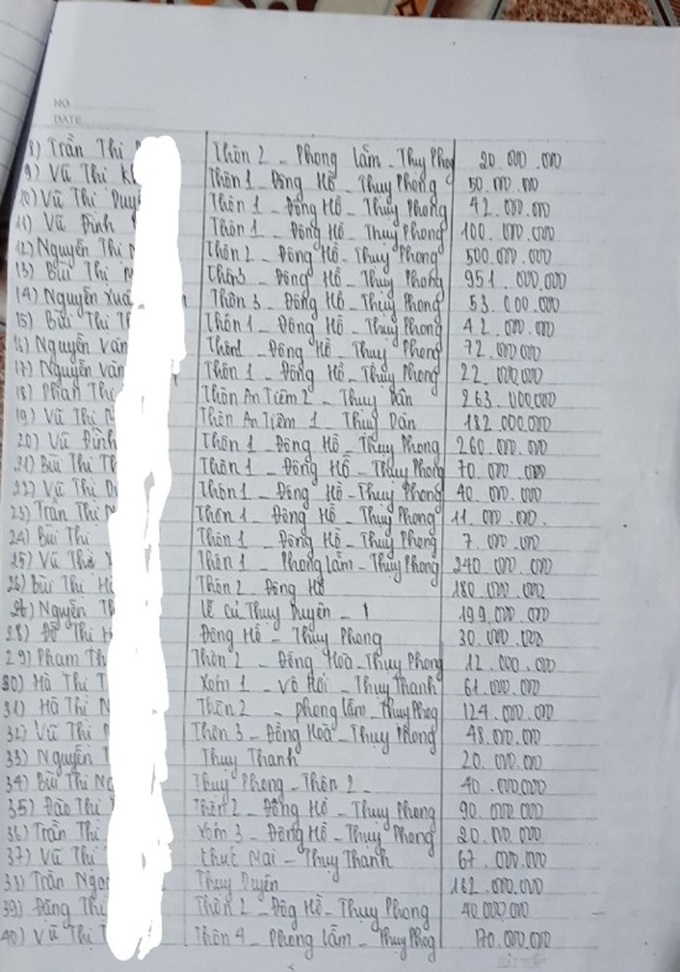 NO
DATE
8) Trần Thị Thôn 2 - Phong Lẫm - Thụy Phog 20.000.000
9) Vũ Thị K Thôn 1 - Đông Hồ - Thụy Phong 50.000.000
10) Vũ Thị Duy Thôn 1 - Đông Hồ - Thụy Phong 42.000.000
11) Vũ Đình Thôn 1 - Đông Hồ - Thụy Phong 100.000.000
12) Nguyễn Thị Thôn 2 - Đông Hồ - Thụy Phong 500.000.000
13) Bùi Thị Thôn 3 - Đông Hồ - Thụy Phong 951.000.000
14) Nguyễn Xuâ Thôn 3 - Đông Hồ - Thụy Phong 53.000.000
15) Bùi Thị T Thôn 1 - Đông Hồ - Thụy Phong 42.000.000
16) Nguyễn Văn Thôn 1 - Đông Hồ - Thụy Phong 72.000.000
17) Nguyễn Văn Thôn 1 - Đông Hồ - Thụy Phong 22.000.000
18) Phan Thị Thôn An Tiêm 2 - Thụy Dân 263.000.000
19) Vũ Thị N Thôn An Tiêm 1 - Thụy Dân 182.000.000
20) Vũ Đình Thôn 1 - Đông Hồ - Thụy Phong 260.000.000
21) Bùi Thị Th Thôn 1 - Đông Hồ - Thụy Phong 70.000.000
22) Vũ Thị D Thôn 1 - Đông Hồ - Thụy Phong 40.000.000
23) Trần Thị N Thôn 1 - Đông Hồ - Thụy Phong 11.000.000.
24) Bùi Thị Thôn 1 - Đông Hồ - Thụy Phong 7.000.000
25) Vũ Thị Thôn 1 - Phong Lẫm - Thụy Phong 240.000.000
26) Bùi Thị H Thôn 2 Đông Hồ 180.000.000
27) Nguyễn Th Lễ Củ Thụy Duyên - 1 199.000.000
28) Đỗ Thị H Đông Hồ - Thụy Phong 30.000.000
29) Phạm Th Thôn 2 - Đồng Hoà - Thụy Phong 12.000.000
30) Hà Thị T Xóm 1 - Vô Hối - Thụy Thanh 61.000.000
31) Hà Thị N Thôn 2 - Phong Lẫm - Thụy Phog 124.000.000
32) Vũ Thị Thôn 3 - Đồng Hoà - Thụy Phong 48.000.000
33) Nguyễn T Thụy Thanh 20.000.000
34) Bùi Thị Ng Thụy Phong - Thôn 2 - 40.000.000
35) Đào Thị Thôn 2 - Đông Hồ - Thụy Phong 90.000.000
36) Trần Thị Xóm 3 - Đông Hồ - Thụy Phong 20.000.000
37) Vũ Thị Thuc Mai - Thụy Thanh 67.000.000
38) Trần Ngọ Thụy Duyên 162.000.000
39) Đặng Thị Thôn 2 - Đôg Hồ - Thụy Phong 40.000.000
40) Vũ Thị T Thôn 4 - Phong Lẫm - Thụy Phog 170.000.000